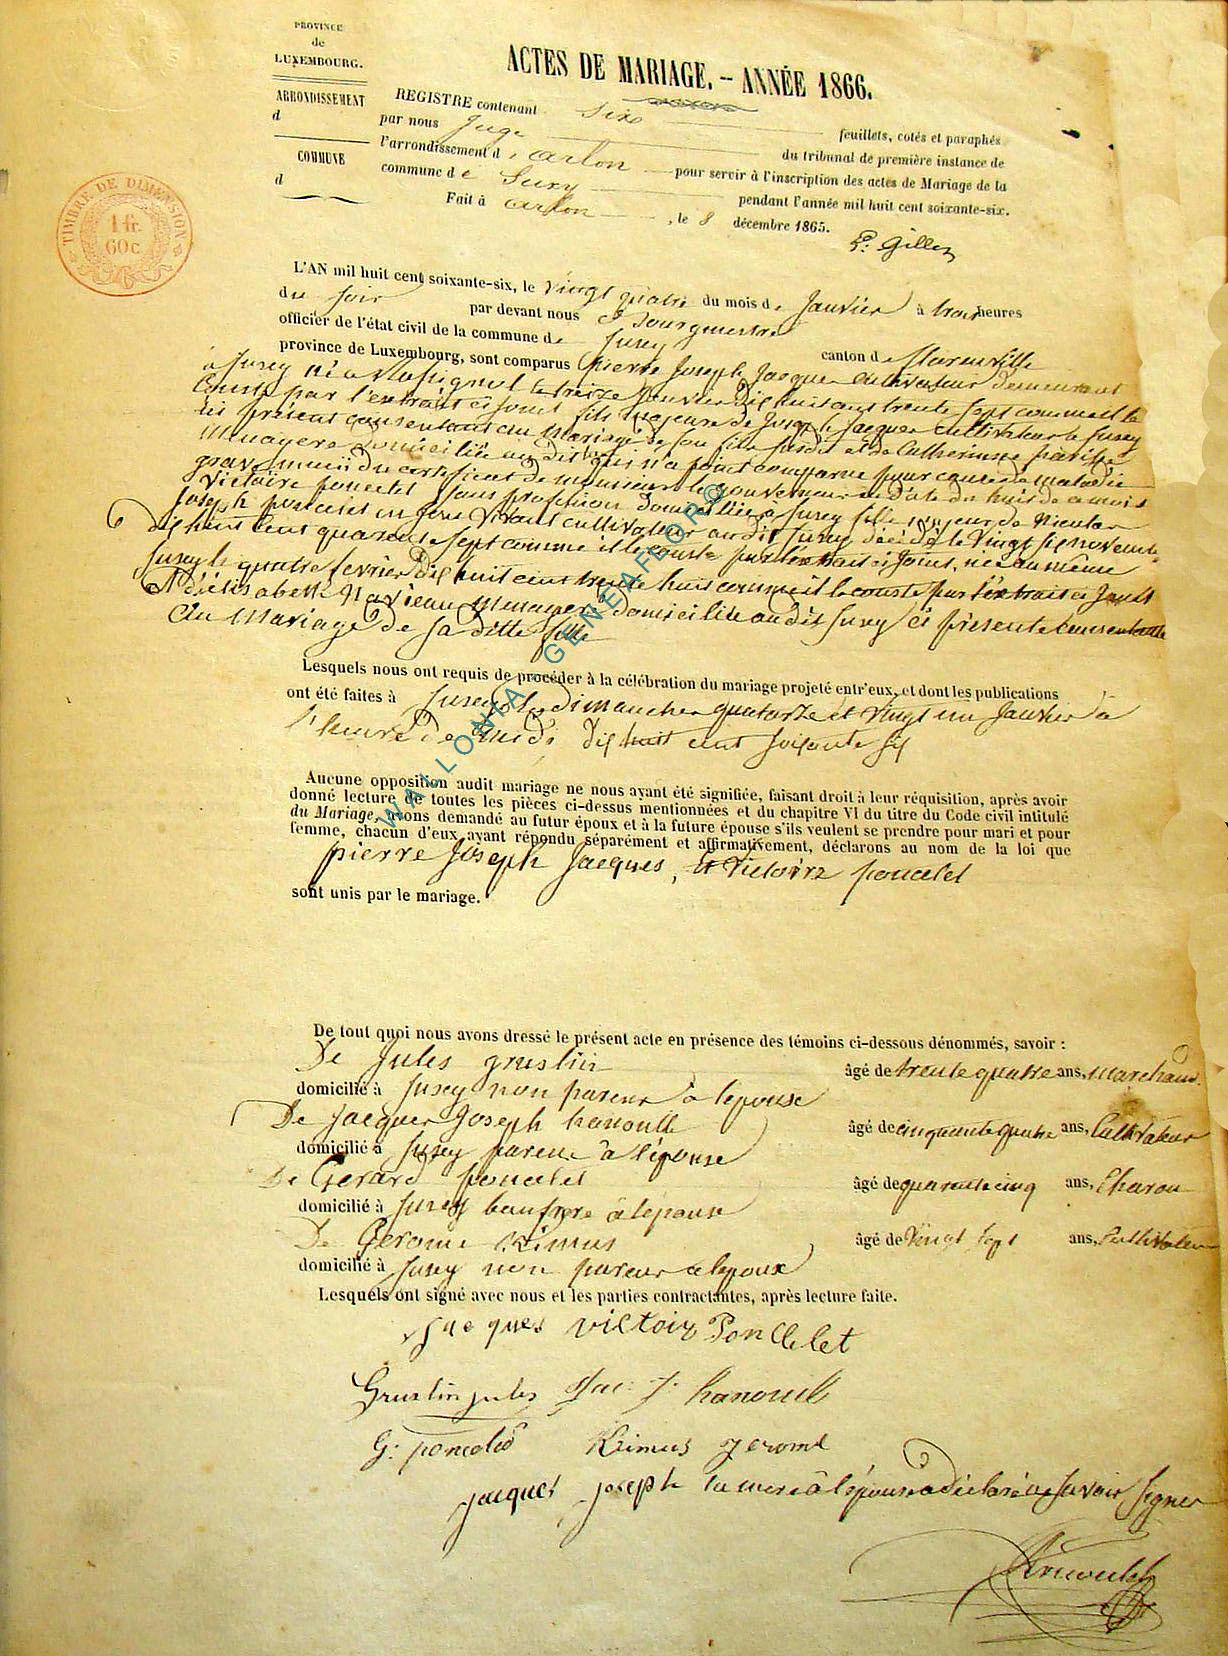 PROVINCE
de
LUXEMBOURG.
ARRONDISSEMENT
d
COMMUNE
d
TIMBRE DE DIMENSION
1 fr.
60 c.
ACTES DE MARIAGE. – ANNÉE 1866.
REGISTRE contenant six feuillets, cotés et paraphés
par nous Juge du tribunal de première instance de
l'arrondissement d'arlon pour servir à l'inscription des actes de Mariage de la
commune de Sury pendant l'année mil huit cent soixante-six.
Fait à arlon, le 8 décembre 1865.
L'AN mil huit cent soixante-six, le vingt quatre du mois de Janvier à trois heures
du soir par devant nous Bourgmestre
officier de l'état civil de la commune de Jusey canton de
province de Luxembourg, sont comparus pierre Joseph Jacques cultivateur demeurant
à Jusey né à le treize Janvier dix huit cent trente sept comme il le
conste par l'extrait ci joint fils majeure de Joseph Jacques cultivateur Jusey
ici présent consentant au mariage de son fils et de Catherine
menagere domiciliée au dit lieu qui n'a point comparue pour cause de maladie
grave muni du certificat de monsieur le gouverneur en date du huit de ce mois
victoire poncelet sans profession domiciliée à Jusey fille majeur de Nicolas
Joseph poncelet vivant cultivateur au dit Jusey décédé le vingt six novembre
dix huit cent quarante sept comme il le conste par l'extrait ci Joint, née au même
Jusey le quatre fevrier dix huit cent trente huit comme il le conste par l'extrait ci Joint
élisabeth menagere domiciliée au dit Jusey ci présente consentante
au mariage de sa ditte fille
Lesquels nous ont requis de procéder à la célébration du mariage projeté entr'eux, et dont les publications
ont été faites à Jusey les dimanches quatorze et vingt un Janvier à
l'heure de midi dix huit cent soixante six
Aucune opposition audit mariage ne nous ayant été signifiée, faisant droit à leur réquisition, après avoir
donné lecture de toutes les pièces ci-dessus mentionnées et du chapitre VI du titre du Code civil intitulé
du Mariage, avons demandé au futur époux et à la future épouse s'ils veulent se prendre pour mari et pour
femme, chacun d'eux ayant répondu séparément et affirmativement, déclarons au nom de la loi que
pierre Joseph Jacques, et victoire poncelet
sont unis par le mariage.
De tout quoi nous avons dressé le présent acte en présence des témoins ci-dessous dénommés, savoir :
De Jules grustin âgé de trente quatre ans, marchand
domicilié à Jusey non parent à l'epouse
De Jacques Joseph hanoulle âgé de cinquante quatre ans, Cultivateur
domicilié à Jusey parent à l'épouse
De Gerard poncelet âgé de quarante cinq ans, Charon
domicilié à Jusey beaufrere à l'épouse
De Gerome Krimus âgé de vingt sept ans, cultivateur
domicilié à Jusey non parent a lepoux
Lesquels ont signé avec nous et les parties contractantes, après lecture faite.
Jacques victoir Poncelet
Grustin jules Jac. J. hanoulle
G: poncelet Krimus jerome
jacques joseph la mere à l'épouse a déclaré ne savoir signer
WALLONIA - GENEAFLOR©